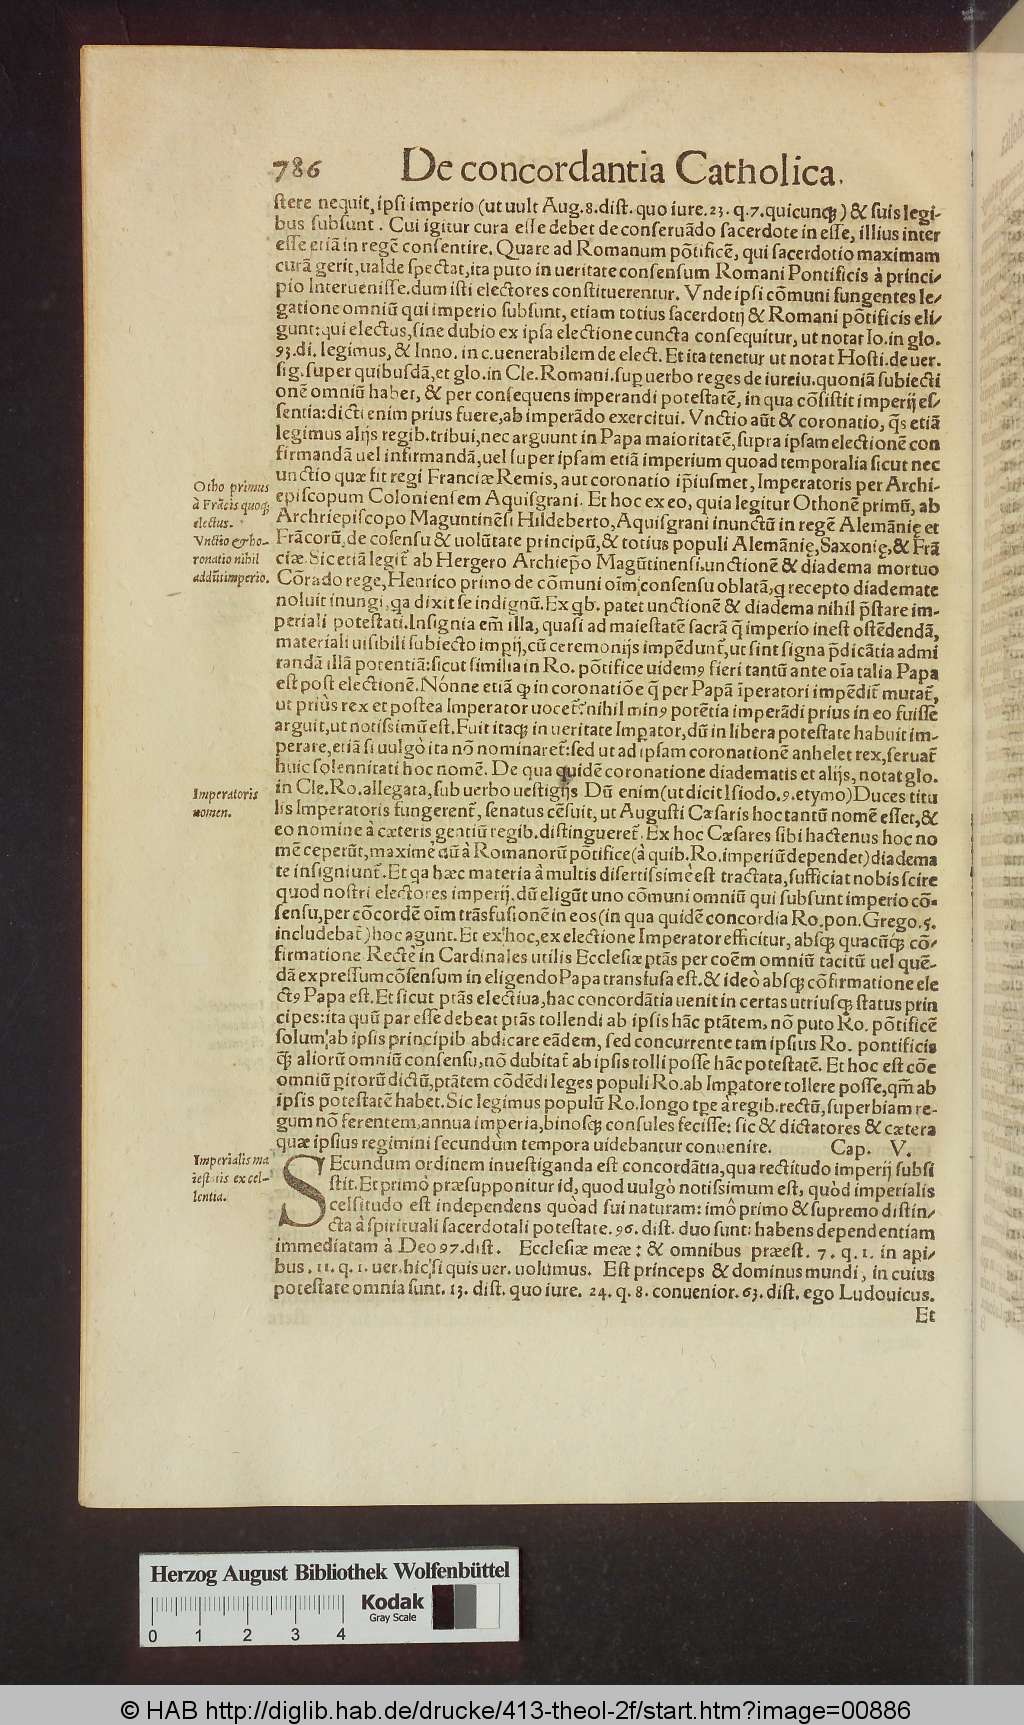 786 De concordantia Catholica.
stere nequit, ipsi imperio (ut uult Aug. 8. dist. quo iure. 23. q. 7. quicunq́;) & suis legi-
bus subsunt. Cui igitur cura esse debet de conseruãdo sacerdote in esse, illius inter
esse etiã in regẽ consentire. Quare ad Romanum põtificẽ, qui sacerdotio maximam
curã gerit, ualde spectat, ita puto in ueritate consensum Romani Pontificis à princi/
pio Interuenisse. dum isti electores constituerentur. Vnde ipsi cõmuni fungentes le/
gatione omniũ qui imperio subsunt, etiam totius sacerdotij & Romani põtificis eli/
gunt: qui electus, sine dubio ex ipsa electione cuncta consequitur, ut notat Io. in glo.
93. di. legimus, & Inno. in c. uenerabilem de elect. Et ita tenetur ut notat Hosti. de uer.
sig. super quibusdã, et glo. in Cle. Romani. sup uerbo reges de iureiu. quoniã subiecti
onẽ omniũ habet, & per consequens imperandi potestatẽ, in qua cõsistit imperij es/
sentia: dicti enim prius fuere, ab imperãdo exercitui. Vnctio aũt & coronatio, q̃s etiã
legimus alijs regib. tribui, nec arguunt in Papa maioritatẽ, supra ipsam electionẽ con
firmandã uel infirmandã, uel super ipsam etiã imperium quoad temporalia sicut nec
unctio quæ fit regi Franciæ Remis, aut coronatio ip̃iusmet, Imperatoris per Archi-
episcopum Coloniensem Aquisgrani. Et hoc ex eo, quia legitur Othonẽ primũ, ab
Archriepiscopo Maguntinẽsi Hildeberto, Aquisgrani inunctũ in regẽ Alemãnię et
Frãcorũ, de cosensu & uolũtate principũ, & totius populi Alemãnię, Saxonię, & Frã
ciæ Sic etiã legit̃ ab Hergero Archiep̃o Magũtinensi. unctionẽ & diadema mortuo
Cõrado rege, Henrico primo de cõmuni oĩm consensu oblatã, q recepto diademate
noluit inungi, qa dixit se indignũ. Ex qb. patet unctionẽ & diadema nihil p̃stare im-
periali potestati. Insignia em̃ illa, quasi ad maiestatẽ sacrã q̃ imperio inest ostẽdendã,
materiali uisibili subiecto impij, cũ ceremonijs impẽdunt̃, ut sint signa p̃dicãtia admi
randã illã potentiã: sicut similia in Ro. põtifice uidemꝰ fieri tantũ ante oĩa talia Papa
est post electionẽ. Nónne etiã ꝙ in coronatiõe q̃ per Papã ĩperatori impẽdit̃ mutat̃,
ut priùs rex et postea Imperator uocet̃: nihil minꝰ potẽtia imperãdi prius in eo fuisse
arguit, ut notissimũ est. Fuit itaq́; in ueritate Impator, dũ in libera potestate habuit im-
perare, etiã si uulgò ita nõ nominaret̃: sed ut ad ipsam coronationẽ anhelet rex, seruat̃
huic solennitati hoc nomẽ. De qua quidẽ coronatione diadematis et alijs, notat glo.
in Cle. Ro. allegata, sub uerbo uestigijs Dũ enim (ut dicit Isiodo. 9. etymo) Duces titu
lis Imperatoris fungerent̃, senatus cẽsuit, ut Augusti Cæsaris hoc tantũ nomẽ esset, &
eo nomine à cæteris gentiũ regib. distingueret̃. Ex hoc Cæsares sibi hactenus hoc no
mẽ ceperũt, maximè cũ à Romanorũ põtifice (à quib. Ro. imperiũ dependet) diadema
te insigniunt̃. Et qa hæc materia à multis disertissimè est tractata, sufficiat nobis scire
quod nostri electores imperij, dũ eligũt uno cõmuni omniũ qui subsunt imperio cõ-
sensu, per cõcordẽ oĩm trãsfusionẽ in eos (in qua quidẽ concordia Ro. pon. Grego. 5.
includebat̃) hoc agunt. Et ex hoc, ex electione Imperator efficitur, absq́; quacũq́; cõ/
firmatione Rectè in Cardinales utilis Ecclesiæ ptãs per coẽm omniũ tacitũ uel quẽ-
dã expressum cõsensum in eligendo Papa transfusa est. & ideò absq́; cõfirmatione ele
ctꝰ Papa est. Et sicut ptãs electiua, hac concordãtia uenit in certas utriusq́; status prin
cipes: ita quũ par esse debeat ptãs tollendi ab ipsis hãc ptãtem, nõ puto Ro. põtificẽ
solum ab ipsis principib abdicare eãdem, sed concurrente tam ipsius Ro. pontificis
q̃; aliorũ omniũ consensu, nõ dubitat̃ ab ipsis tolli posse hãc potestatẽ. Et hoc est cõe
omniũ pitorũ dictũ, ptãtem cõdẽdi leges populi Ro. ab Impatore tollere posse, qm̃ ab
ipsis potestatẽ habet. Sic legimus populũ Ro. longo tpe à regib. rectũ, superbiam re-
gum nõ ferentem, annua imperia, binosq́; consules fecisse: sic & dictatores & cætera
quæ ipsius regimini secundùm tempora uidebantur conuenire. Cap. V.
SEcundum ordinem inuestiganda est concordãtia, qua rectitudo imperij subsi
stit. Et primò præsupponitur id, quod uulgò notissimum est, quòd imperialis
celsitudo est independens quòad sui naturam: imò primo & supremo distin/
cta à spirituali sacerdotali potestate. 96. dist. duo sunt: habens dependentiam
immediatam à Deo 97. dist. Ecclesiæ meæ: & omnibus præest. 7. q. 1. in api/
bus. 11. q. 1. uer. hic, si quis uer. uolumus. Est princeps & dominus mundi, in cuius
potestate omnia sunt. 13. dist. quo iure. 24. q. 8. conuenior. 63. dist. ego Ludouicus.
Et
Otho primus
à Frãcis quoq;
electus.
Vnctio & ho-
ronatio nihil
addũt imperio.
Imperatoris
nomen.
Imperialis ma
iestatis excel-
lentia.
Herzog August Bibliothek Wolfenbüttel
Kodak
Gray Scale
0 1 2 3 4
© HAB http://diglib.hab.de/drucke/413-theol-2f/start.htm?image=00886